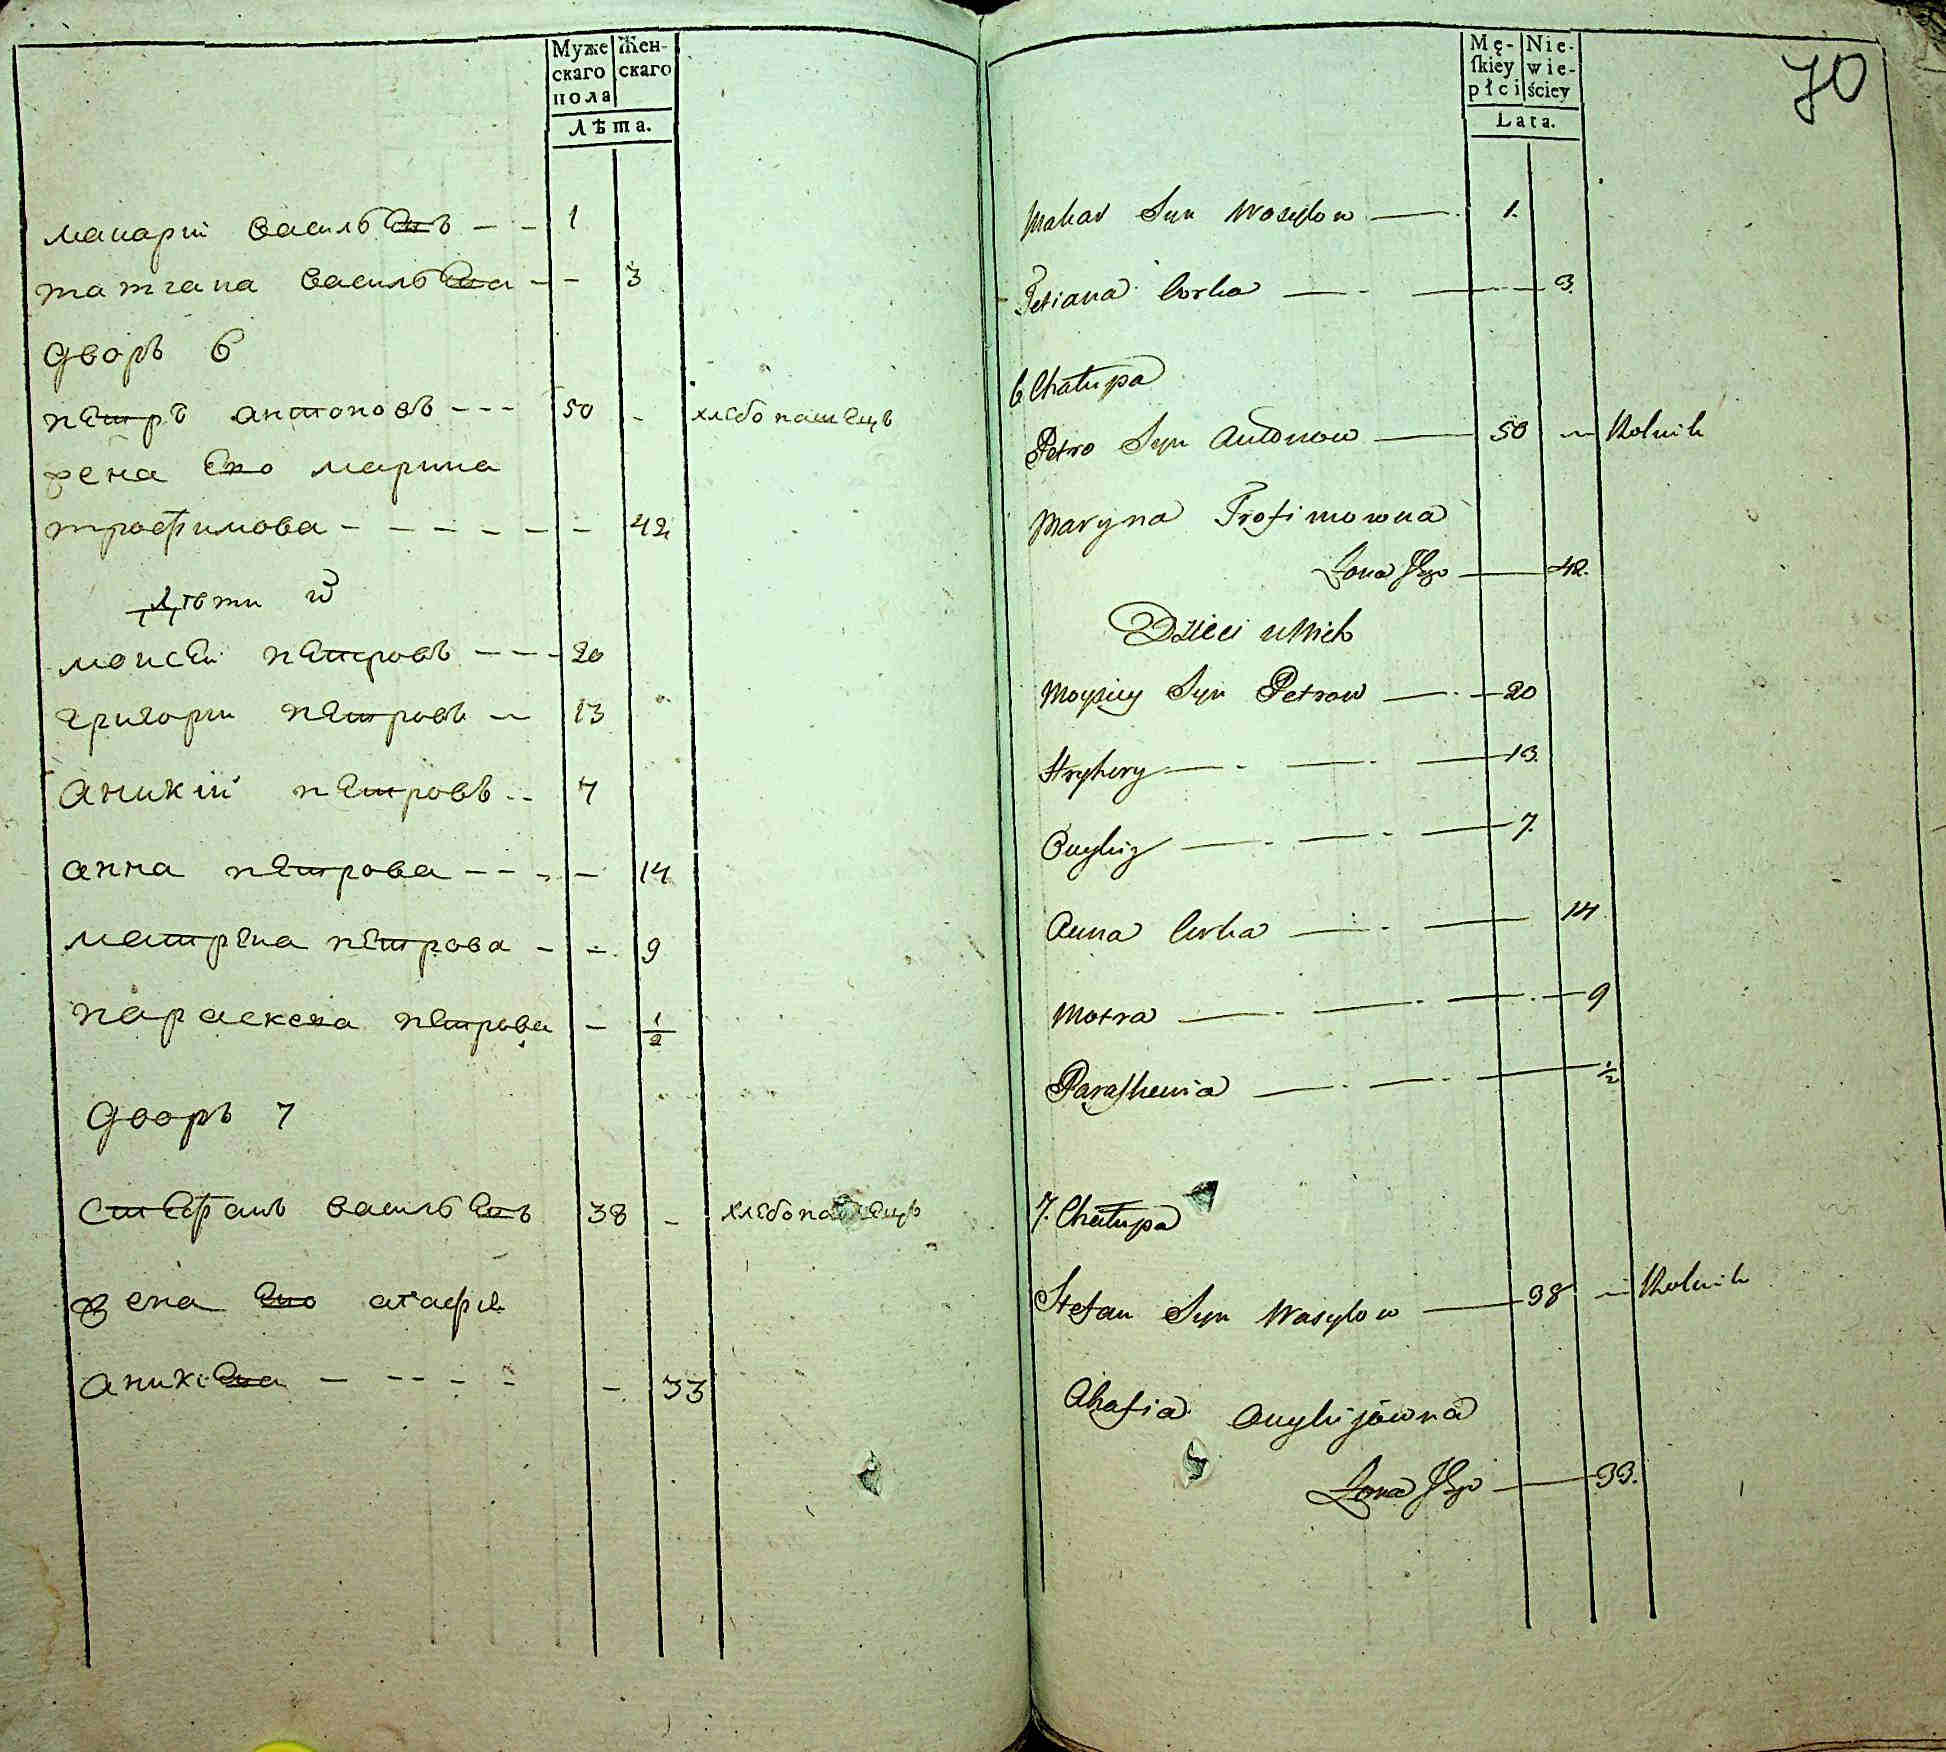 Муже
скаго
пола
Жен-
скаго
Лѣта.
макарій васильевъ - - 1
татіана васильева - - 3
дворъ 6
петръ антоновъ - - - 50 - хлебопашецъ
жена его марина
трофимова - - - - - - 42
дѣти ихъ
моисей петровъ - - - 20
григории петровъ - 13
аникій петровъ - - 7
анна петрова - - - - 14
матрена петрова - - 9
параскева петрова - 1/2
дворъ 7
стефанъ васильевъ 38 - хлебопашецъ
жена его агафія
аникіева - - - - - - 33
Mę-
skiey
płci
Nie-
wie-
ściey
Lata.
70
Makar Syn Wasylow — 1.
Tetiana Corka — - — 3.
6 Chałupa
Petro Syn Antonow — 50 - Rolnik
Maryna Trofimowna
Zona Jego — 42.
Dzieci u Nich
Moysiey Syn Petrow — - — 20
Hryhory — - — - — 13.
Onykiy — - — - — 7.
Anna Corka — - — 14
Motra — - — - — 9
Paraskewia — - — - — 1/2
7. Chałupa
Stefan Syn Wasylow — 38 - Rolnik
Ahafia Onykijowna
Zona Jego — 33.